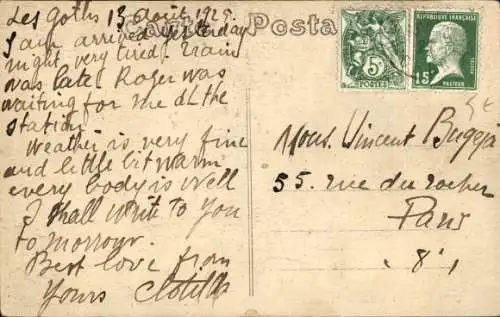 Carte Postale
Les Goths 13 Août 1925
I am arrived yesterday
night very tired. Train
was late Roger was
waiting for me at the
station
Weather is very fine
and little bit warm
every body is well
I shall write to you
to morrow.
Best love from
Yours Clotilde
5c
POSTES
RÉPUBLIQUE FRANÇAISE
15c
PASTEUR
POSTES
Mons. Vincent Bugeja
55. rue du rocher
Paris
8e